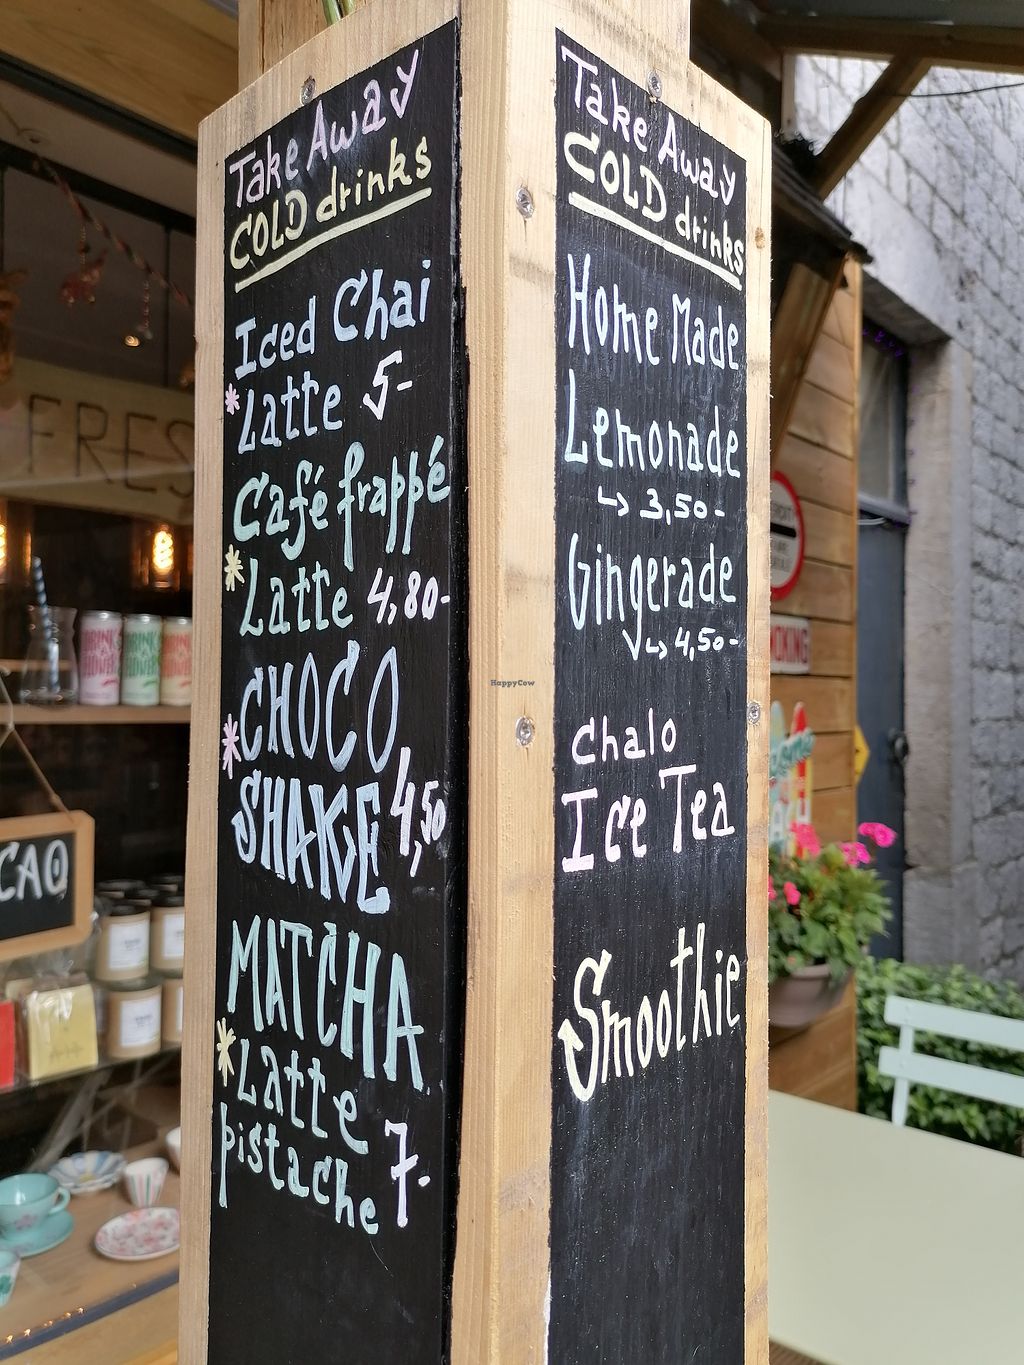 Take Away
COLD drinks
Iced Chai
*Latte 5-
Café frappé
*Latte 4,80-
*CHOCO
SHAKE 4,50
MATCHA
*Latte
pistache 7-
Take Away
COLD drinks
Home Made
Lemonade
↳ 3,50-
Gingerade
↳ 4,50-
Chalo
Ice Tea
Smoothie
HappyCow
FRES
CAO